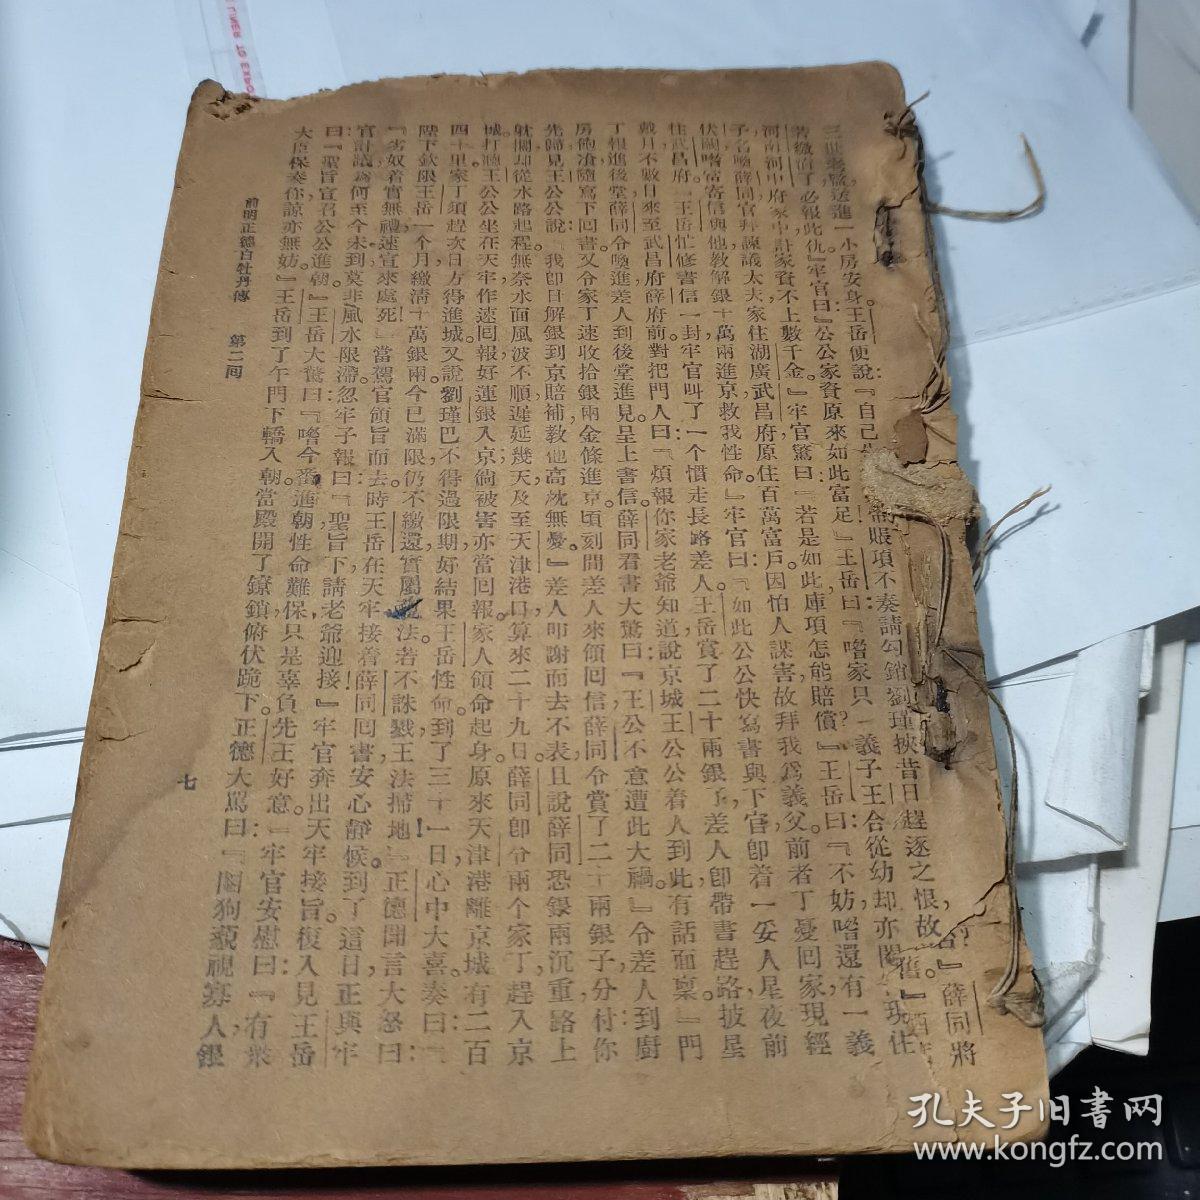 三世老監送進一小房安身王岳便說『自己
賬項不奏請勾銷劉瑾挾昔日趕逐之恨故
若繳清了必報此仇』牢官曰『公公家資原來如此富足』王岳曰『喒家只一義子王合從幼却亦
現住
河南河中府家中計家資不上數千金』牢官驚曰『若是如此庫項怎能賠償』王岳曰『不妨喒還有一義
子名喚薛同官拜諫議太夫家住湖廣武昌府原住百萬富戶因怕人謀害故拜我爲義父前者丁憂回家現經
伏闕喒當寄信與他敎解銀十萬兩進京救我性命』牢官曰『如此公公快寫書與下官卽着一妥人星夜前
往武昌府』王岳忙修書信一封牢官叫了一个慣走長路差人王岳賞了二十兩銀子差人卽帶書趕路披星
戴月不數日來至武昌府薛府前對把門人曰『煩報你家老爺知道說京城王公公着人到此有話面稟』門
丁報進後堂薛同令喚進差人到後堂進見呈上書信薛同看書大驚曰『王公不意遭此大禍』令差人到廚
房飽飡隨寫下回書又令家丁速收拾銀兩金條進京頃刻間差人來領回信薛同令賞了二十兩銀子分付你
先歸見王公公說『我卽日解銀到京賠補敎他高枕無憂』差人叩謝而去不表且說薛同恐銀兩沉重路上
躭擱却從水路起程無奈水面風波不順遲延幾天及至天津港口算來二十九日薛同卽令兩个家丁趕入京
城打聽王公公坐在天牢作速回報好運銀入京倘被害亦當回報家人領命起身原來天津港離京城有二百
四十里家丁須趕次日方得進城又說劉瑾巴不得過限期好結果王岳性命到了三十一日心中大喜奏曰『
陛下欽限王岳一个月繳淸十萬銀兩今已滿限仍不繳還實屬藐法若不誅戮王法掃地』正德聞言大怒曰
『老奴着實無禮速宣來處死』當駕官領旨而去時王岳在天牢接着薛同回書安心靜候到了這日正與牢
官計議爲何至今未到莫非風水限滯忽牢子報曰『聖旨下請老爺迎接』牢官奔出天牢接旨復入見王岳
曰『聖旨宣召公公進朝』王岳大驚曰『喒今番進朝性命難保只是辜負先王好意』牢官安慰曰『有衆
大臣保奏你諒亦無妨』王岳到了午門下轎入朝當殿開了鐐鎖俯伏跪下正德大罵曰『閹狗藐視寡人銀
前明正德白牡丹傳　第二回　七
孔夫子旧書网
www.kongfz.com